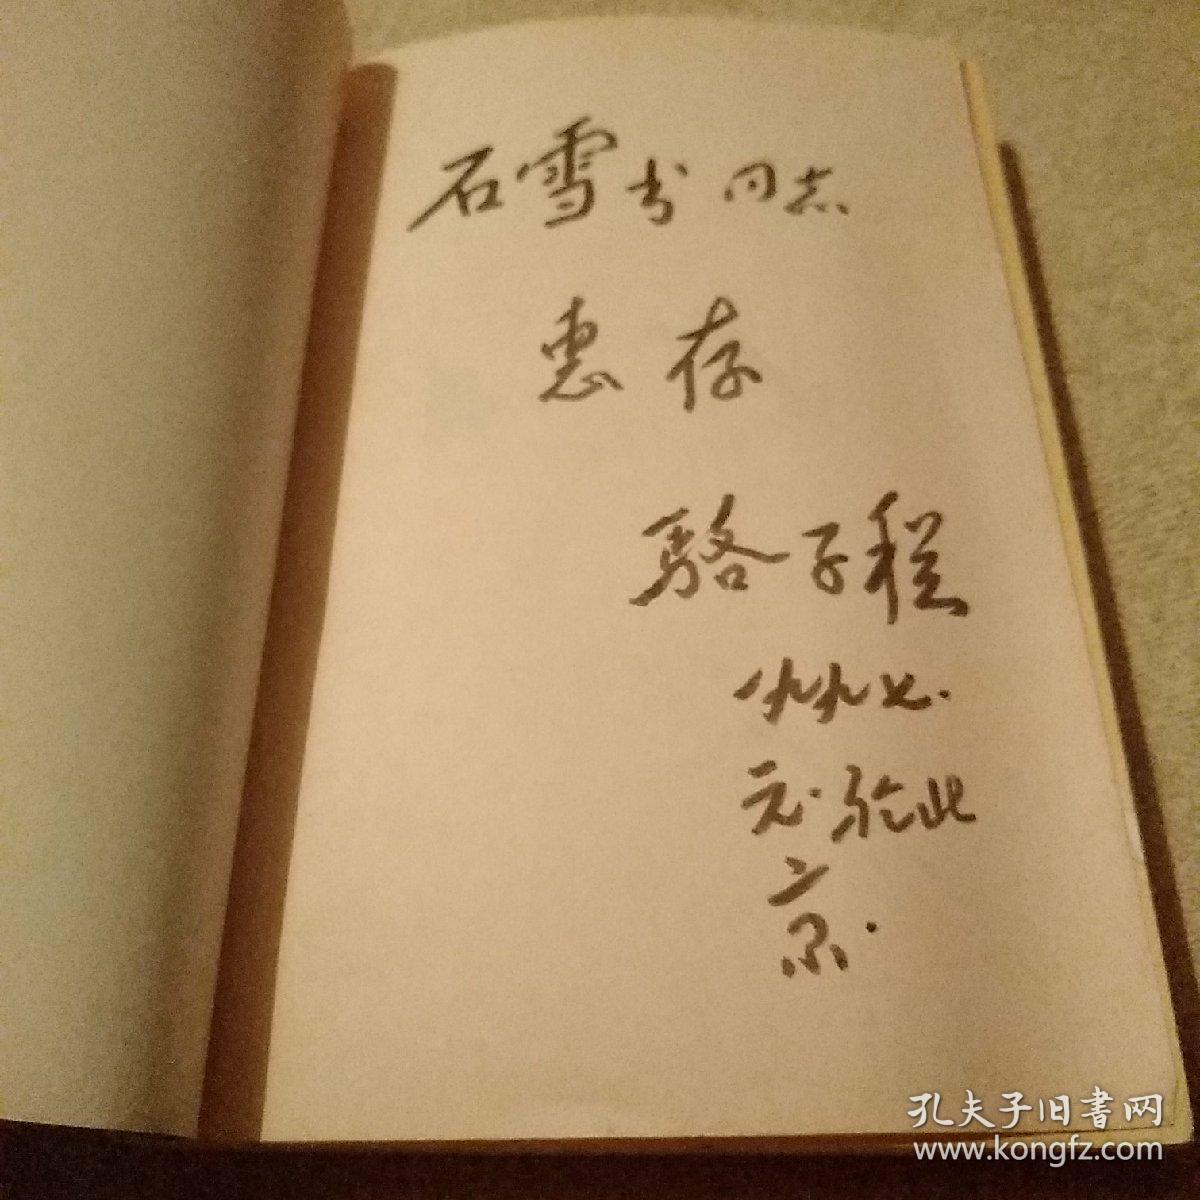 石雪书同志
惠存
骆子程
一九九七.
元.于北
京.
孔夫子旧書网
www.kongfz.com